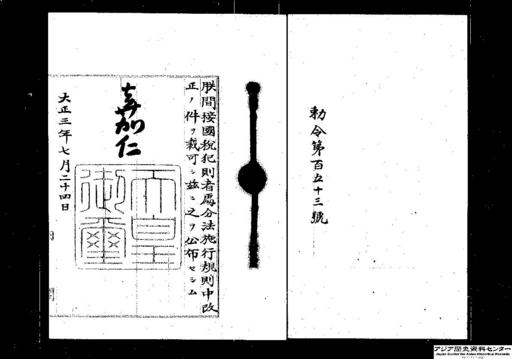 勅令第百五十三號
朕間接國稅犯則者處分法施行規則中改
正ノ件ヲ裁可シ茲ニ之ヲ公布セシム
嘉仁
天皇御璽
大正三年七月二十四日
内閣
アジア歴史資料センター
Japan Center for Asian Historical Records